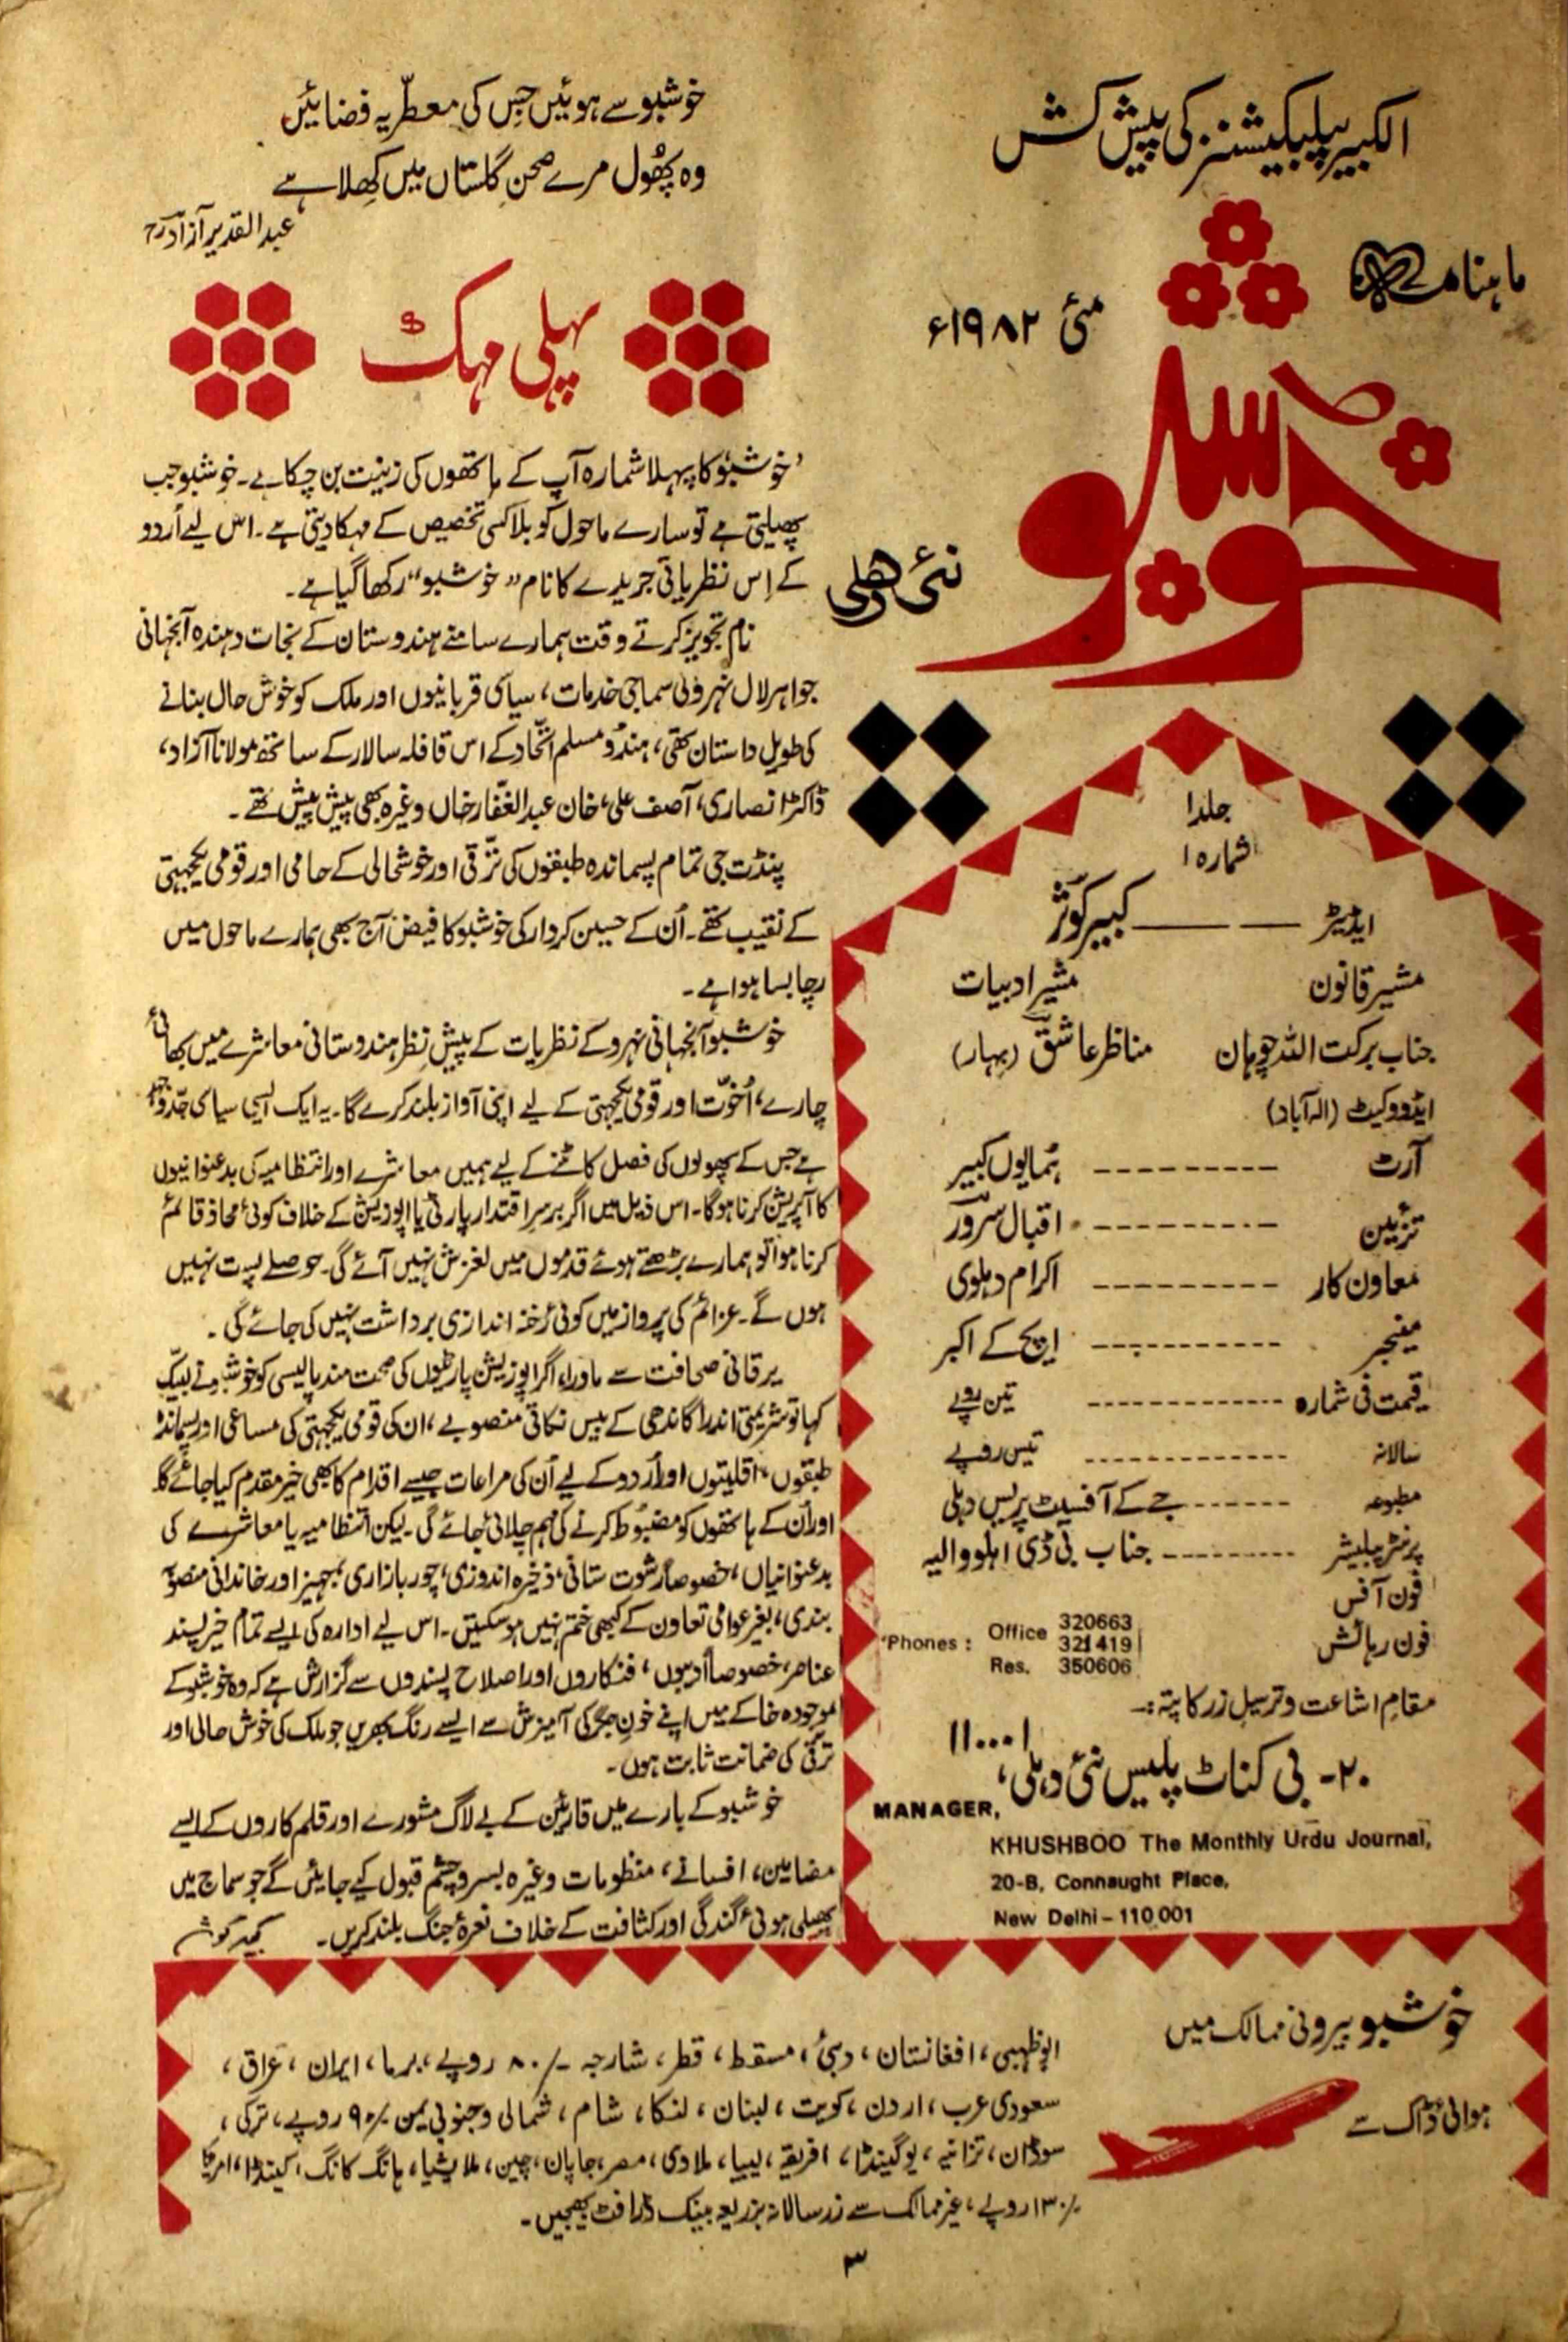 الکبیر پبلیکیشنز کی پیش کش
ماہنامہ
مئی ۱۹۸۲ء
خوشبو
نئی دھلی
جلد ۱
شمارہ ۱
ایڈیٹر ——— کبیر کوثر
مشیر قانون مشیر ادبیات
جناب برکت اللہ چوہان مناظر عاشق (بہار)
ایڈووکیٹ (الہ آباد)
آرٹ --------- ہمایوں کبیر
تزئین --------- اقبال سرور
معاون کار --------- اکرام دہلوی
منیجر --------- ایچ کے اکبر
قیمت فی شمارہ --------- تین روپے
سالانہ --------- تیس روپے
مطبوعہ ------- جے کے آفسیٹ پریس دہلی
پرنٹر پبلیشر ------- جناب بی ڈی اہلووالیہ
فون آفس
فون رہائش
Phones : Office 320663
321419
Res. 350606
مقام اشاعت و ترسیل زر کا پتہ :-
۲۰- بی کناٹ پلیس نئی دہلی، ۱۱۰۰۰۱
MANAGER,
KHUSHBOO The Monthly Urdu Journal,
20-B, Connaught Place,
New Delhi - 110 001
خوشبو سے ہوئیں جِس کی معطّر یہ فضائیں
وہ پھُول مرے صحنِ گلستاں میں کھِلا ہے
عبد القدیر آزاد
پہلی مہک
’خوشبو‘ کا پہلا شمارہ آپ کے ہاتھوں کی زینت بن چکا ہے۔ خوشبو جب
پھیلتی ہے تو سارے ماحول کو بلا کسی تخصیص کے مہکا دیتی ہے۔ اس لیے اُردو
کے اِس نظریاتی جریدے کا نام ”خوشبو“ رکھا گیا ہے۔
نام تجویز کرتے وقت ہمارے سامنے ہندوستان کے نجات دہندہ آنجہانی
جواہر لال نہرو کی سماجی خدمات، سیاسی قربانیوں اور ملک کو خوش حال بنانے
کی طویل داستان تھی، ہندُو مسلم اتّحاد کے اس قافلہ سالار کے ساتھ مولانا آزاد،
ڈاکٹر انصاری، آصف علی، خان عبد الغفّار خاں وغیرہ بھی پیش پیش تھے۔
پنڈت جی تمام پسماندہ طبقوں کی ترّقی اور خوشحالی کے حامی اور قومی یکجہتی
کے نقیب تھے۔ اُن کے حسین کردار کی خوشبو کا فیض آج بھی ہمارے ماحول میں
رچا بسا ہوا ہے۔
خوشبو آنجہانی نہرو کے نظریات کے پیشِ نظر ہندوستانی معاشرے میں بھائی
چارے، اُخوّت اور قومی یکجہتی کے لیے اپنی آواز بلند کرے گا۔ یہ ایک ایسی سیاسی جدّوجہد
ہے جس کے پھولوں کی فصل کاٹنے کے لیے ہمیں معاشرے اور انتظامیہ کی بدعنوانیوں
کا آپریشن کرنا ہوگا۔ اس ذیل میں اگر برسرِ اقتدار پارٹی یا اپوزیشن کے خلاف کوئی محاذ قائم
کرنا ہوا تو ہمارے بڑھتے ہوئے قدموں میں لغزش نہیں آئے گی۔ حوصلے پست نہیں
ہوں گے۔ عزائم کی پرواز میں کوئی رخنہ اندازی برداشت نہیں کی جائے گی۔
یرقانی صحافت سے ماورا، اگر اپوزیشن پارٹیوں کی صحت مند پالیسی کو خوشبو نے لبیک
کہا تو شریمتی اندرا گاندھی کے بیس نکاتی منصوبے، ان کی قومی یکجہتی کی مساعی اور پسماندہ
طبقوں، اقلیتوں اور اُردو کے لیے اُن کی مراعات جیسے اقدام کا بھی خیر مقدم کیا جائے گا
اور اُن کے ہاتھوں کو مضبُوط کرنے کی مہم چلائی جائے گی۔ لیکن انتظامیہ یا معاشرے کی
بدعنوانیاں، خصوصاً رشوت ستانی، ذخیرہ اندوزی، چور بازاری، جہیز اور خاندانی منصوبہ
بندی، بغیر عوامی تعاون کے کبھی ختم نہیں ہو سکتیں۔ اس لیے ادارہ کی ایسے تمام خیر پسند
عناصر، خصوصاً ادیبوں، فنکاروں اور اصلاح پسندوں سے گزارش ہے کہ وہ خوشبو کے
موجودہ خاکے میں اپنے خونِ جگر کی آمیزش سے ایسے رنگ بھریں جو ملک کی خوش حالی اور
ترّقی کی ضمانت ثابت ہوں۔
خوشبو کے بارے میں قارئین کے بے لاگ مشورے اور قلم کاروں کے ایسے
مضامین، افسانے، منظومات وغیرہ بسر و چشم قبول کیے جائیں گے جو سماج میں
پھیلی ہوئی گندگی اور کثافت کے خلاف نعرۂ جنگ بلند کریں۔ کبیر کوثر
خوشبو بیرونی ممالک میں
ہوائی ڈاک سے
ابوظہبی، افغانستان، دبئی، مسقط، قطر، شارجہ -/۸۰ روپے، برما، ایران، عراق،
سعودی عرب، اردن، کویت، لبنان، لنکا، شام، شمالی و جنوبی یمن -/۹۰ روپے، ترکی،
سوڈان، تنزانیہ، یوگینڈا، افریقہ، لیبیا، ملاوی، مصر، جاپان، چین، ملایشیا، ہانگ کانگ، کینیڈا، امریکا
-/۱۳۰ روپے، غیر ممالک سے زر سالانہ بذریعہ بینک ڈرافٹ بھیجیں۔
۳